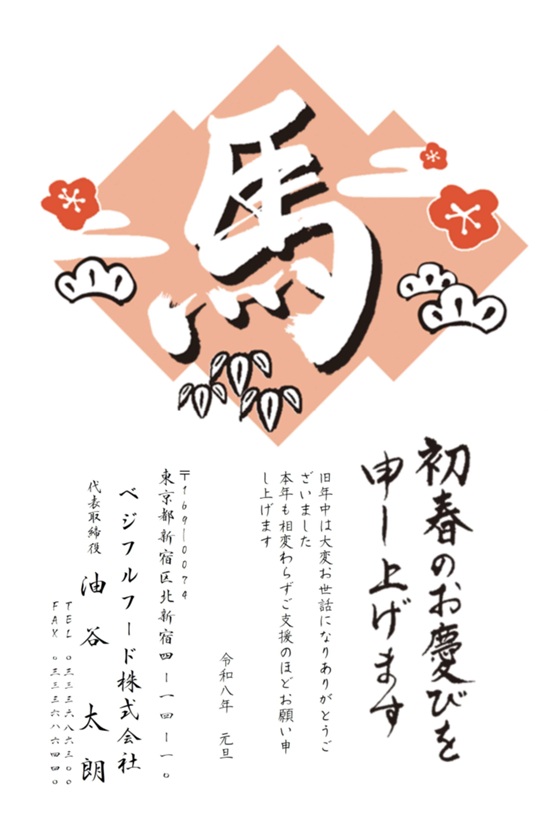 馬
初春のお慶びを
申し上げます
旧年中は大変お世話になりありがとうご
ざいました
本年も相変わらずご支援のほどお願い申
し上げます
令和八年 元旦
〒169-0074
東京都新宿区北新宿四-一四-一-一〇
ベジフルフード株式会社
代表取締役 油谷 太朗
TEL 〇三三三六八六三〇〇
FAX 〇三三三六八六四四〇